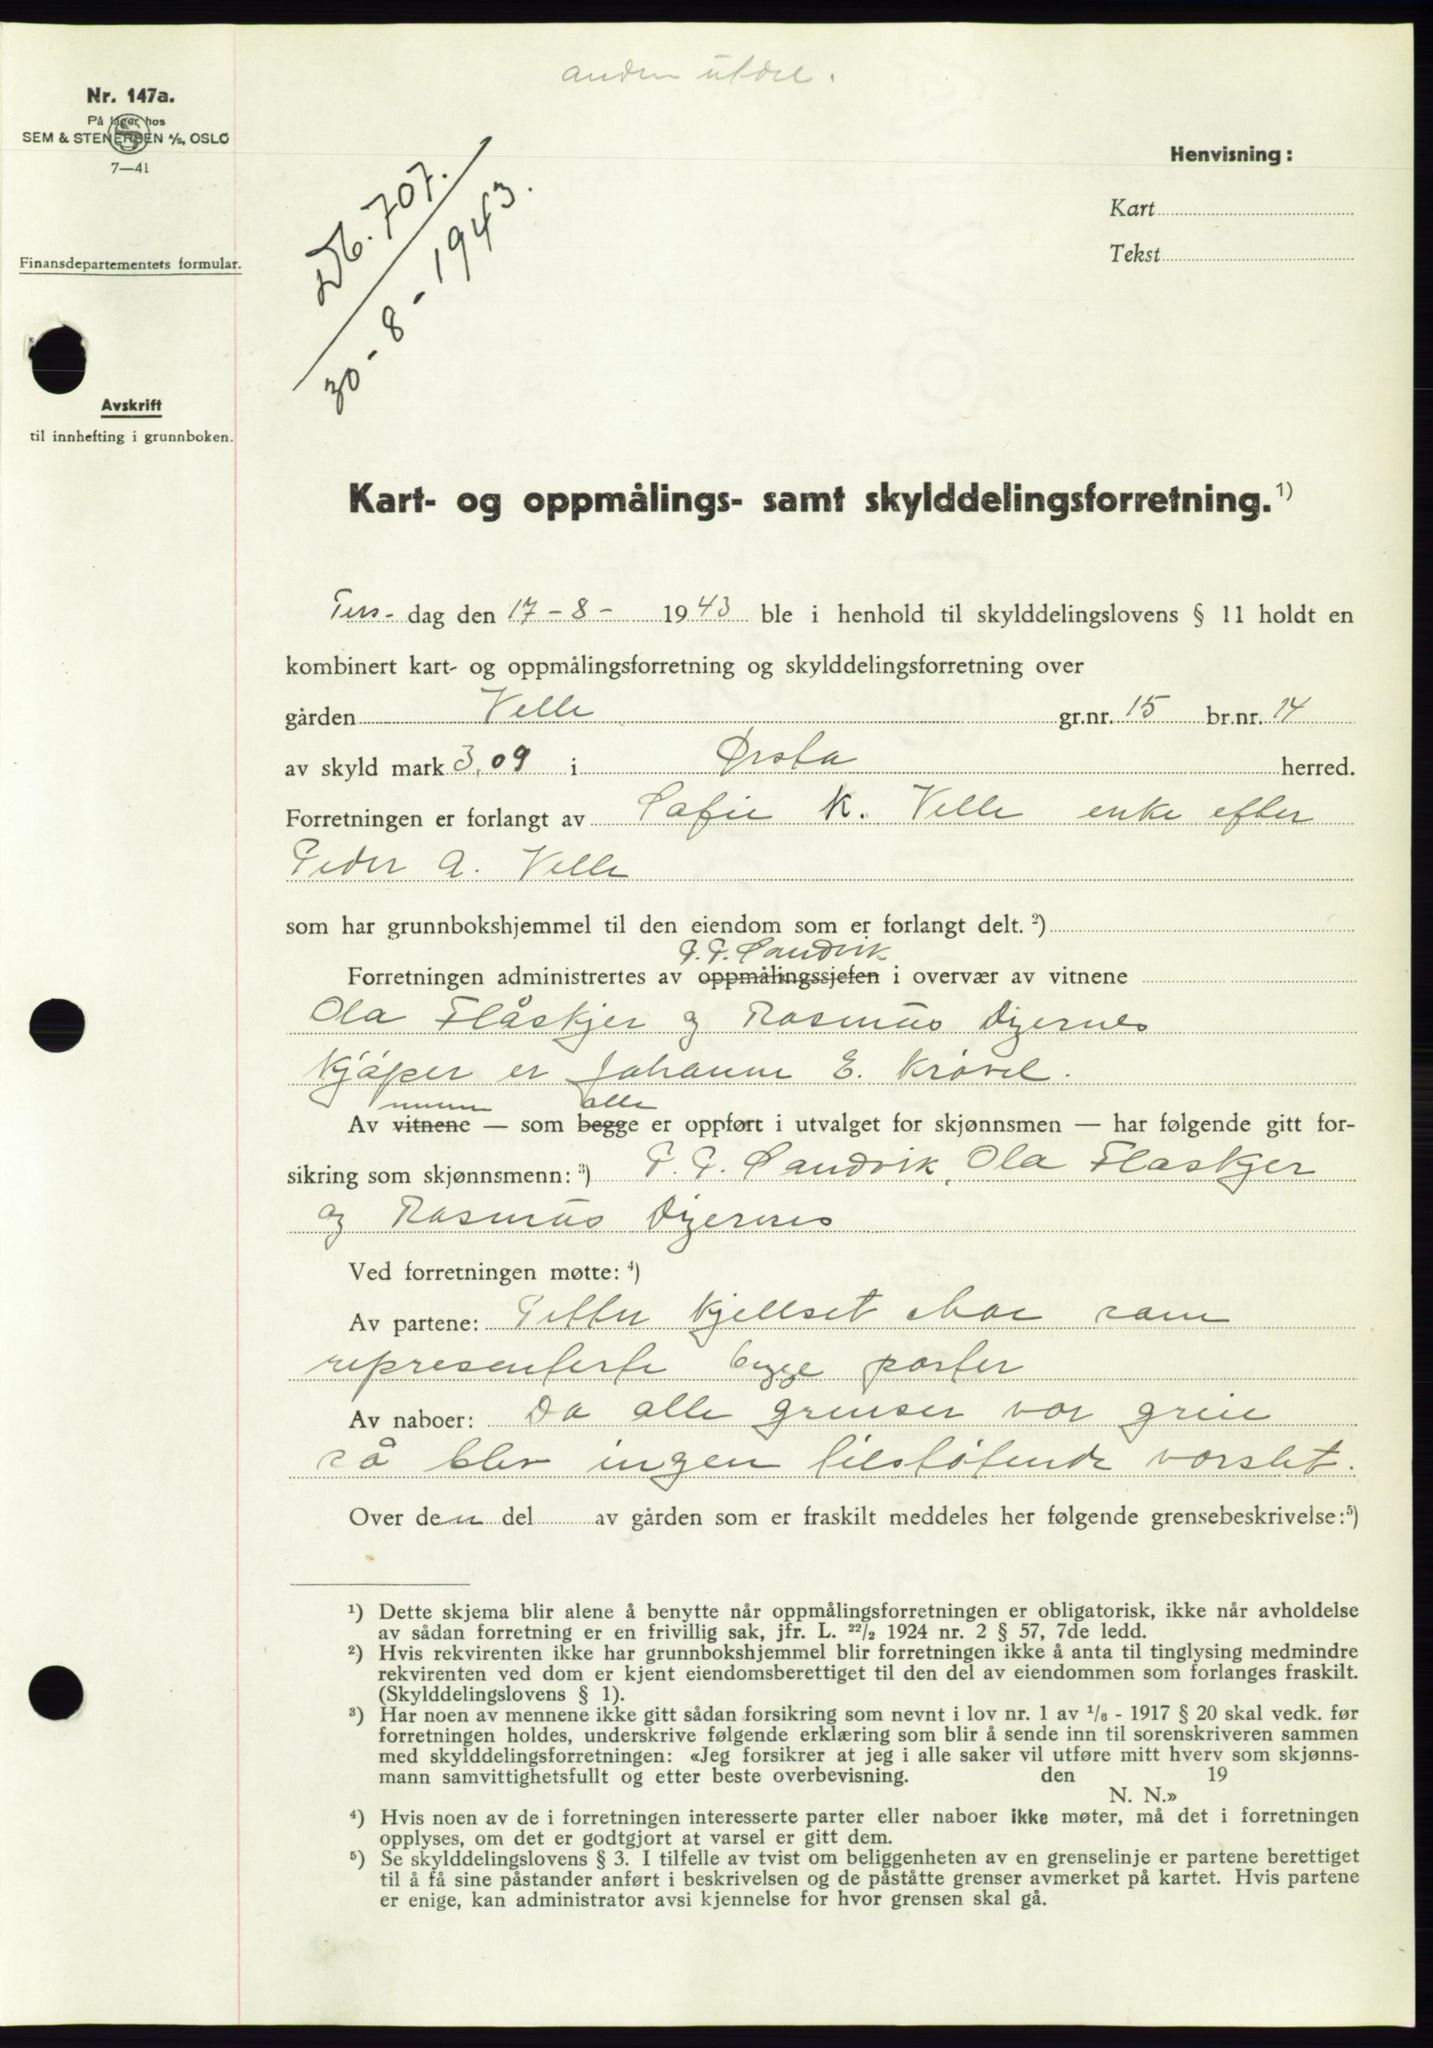 anden utdel.
Nr. 147a.
På lager hos
SEM & STENERSEN A/S, OSLO
7—41
Henvisning:
Kart
Tekst
Finansdepartementets formular.
Db. 707.
30-8-1943.
Avskrift
til innhefting i grunnboken.
Kart- og oppmålings- samt skylddelingsforretning.¹)
Tirs- dag den 17-8- 1943 ble i henhold til skylddelingslovens § 11 holdt en
kombinert kart- og oppmålingsforretning og skylddelingsforretning over
gården Velle gr.nr. 15 br.nr. 14
av skyld mark 3,09 i Ørsta herred.
Forretningen er forlangt av Sofie K. Velle enke efter
Peder A. Velle
som har grunnbokshjemmel til den eiendom som er forlangt delt.²)
P. P. Sandvik
Forretningen administrertes av oppmålingssjefen i overvær av vitnene
Ola Flåskjer og Rasmus Digernes
Kjøper er Johanne E. Krøvel.
menn alle
Av vitnene — som begge er oppført i utvalget for skjønnsmen — har følgende gitt for-
sikring som skjønnsmenn:³) P. P. Sandvik, Ola Flaskjer
og Rasmus Digernes
Ved forretningen møtte:⁴)
Av partene: Petter Kjellset Moe som
representerte begge parter
Av naboer: Da alle grenser var greie
så blev ingen tilstøtende varslet.
Over den del av gården som er fraskilt meddeles her følgende grensebeskrivelse:⁵)
¹) Dette skjema blir alene å benytte når oppmålingsforretningen er obligatorisk, ikke når avholdelse
av sådan forretning er en frivillig sak, jfr. L. 22/2 1924 nr. 2 § 57, 7de ledd.
²) Hvis rekvirenten ikke har grunnbokshjemmel blir forretningen ikke å anta til tinglysing medmindre
rekvirenten ved dom er kjent eiendomsberettiget til den del av eiendommen som forlanges fraskilt.
(Skylddelingslovens § 1).
³) Har noen av mennene ikke gitt sådan forsikring som nevnt i lov nr. 1 av 1/6 - 1917 § 20 skal vedk. før
forretningen holdes, underskrive følgende erklæring som blir å sende inn til sorenskriveren sammen
med skylddelingsforretningen: «Jeg forsikrer at jeg i alle saker vil utføre mitt hverv som skjønns-
mann samvittighetsfullt og etter beste overbevisning. den 19
N. N.»
⁴) Hvis noen av de i forretningen interesserte parter eller naboer ikke møter, må det i forretningen
opplyses, om det er godtgjort at varsel er gitt dem.
⁵) Se skylddelingslovens § 3. I tilfelle av tvist om beliggenheten av en grenselinje er partene berettiget
til å få sine påstander anført i beskrivelsen og de påståtte grenser avmerket på kartet. Hvis partene
er enige, kan administrator avsi kjennelse for hvor grensen skal gå.